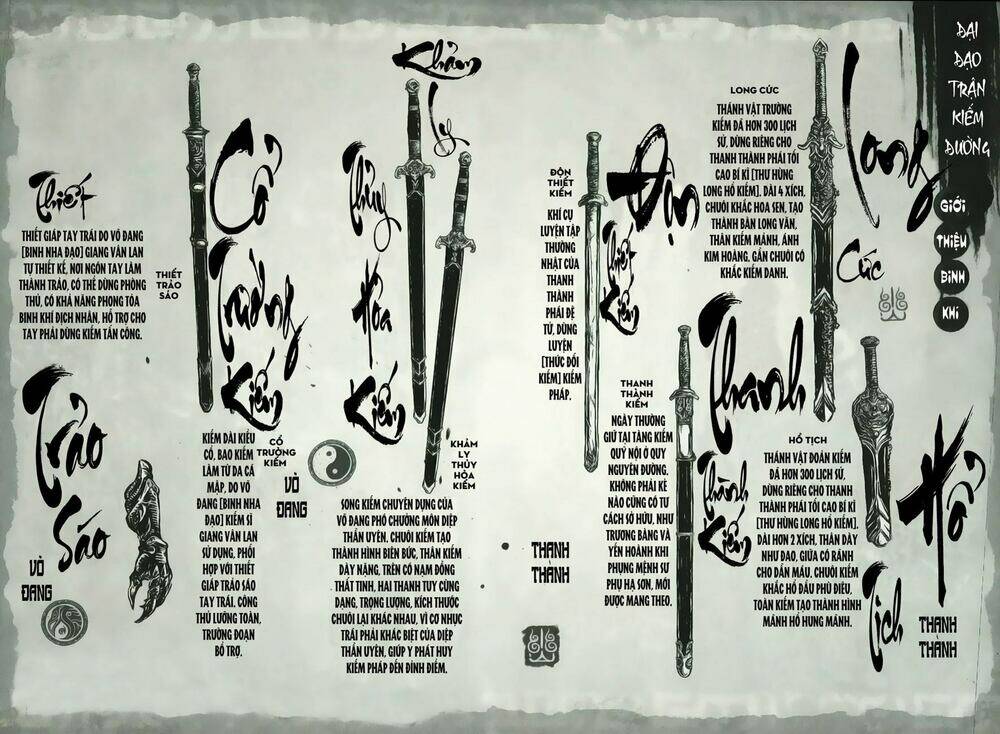 ĐẠI
ĐẠO
TRẬN
KIẾM
ĐƯỜNG
GIỚI
THIỆU
BINH
KHÍ
Long
Cức
LONG CỨC
THÁNH VẬT TRƯỜNG
KIẾM ĐÃ HƠN 300 LỊCH
SỬ, DÙNG RIÊNG CHO
THANH THÀNH PHÁI TỐI
CAO BÍ KĨ [THƯ HÙNG
LONG HỔ KIẾM]. DÀI 4 XÍCH,
CHUÔI KHẮC HOA SEN, TẠO
THÀNH BÀN LONG VĂN,
THÂN KIẾM MẢNH, ÁNH
KIM HOÀNG. GẦN CHUÔI CÓ
KHẮC KIẾM DANH.
Hổ
Tịch
HỔ TỊCH
THÁNH VẬT ĐOẢN KIẾM
ĐÃ HƠN 300 LỊCH SỬ,
DÙNG RIÊNG CHO THANH
THÀNH PHÁI TỐI CAO BÍ KĨ
[THƯ HÙNG LONG HỔ KIẾM].
DÀI HƠN 2 XÍCH, THÂN DÀY
NHƯ ĐAO, GIỮA CÓ RÃNH
CHO DẪN MÁU. CHUÔI KIẾM
KHẮC HỔ ĐẦU PHÙ ĐIÊU,
TOÀN KIẾM TẠO THÀNH HÌNH
MÃNH HỔ HUNG MÃNH.
THANH
THÀNH
Độn
Thiết
Kiếm
ĐỘN
THIẾT
KIẾM
KHÍ CỤ
LUYỆN TẬP
THƯỜNG
NHẬT CỦA
THANH
THÀNH
PHÁI ĐỆ
TỬ, DÙNG
LUYỆN
[THỨC ĐỐI
KIẾM] KIẾM
PHÁP.
Thanh
Thành
Kiếm
THANH
THÀNH
KIẾM
NGÀY THƯỜNG
GIỮ TẠI TÀNG KIẾM
QUỸ NỘI Ở QUY
NGUYÊN ĐƯỜNG.
KHÔNG PHẢI KẺ
NÀO CŨNG CÓ TƯ
CÁCH SỞ HỮU, NHƯ
TRƯƠNG BẰNG VÀ
YẾN HOÀNH KHI
PHỤNG MỆNH SƯ
PHỤ HẠ SƠN, MỚI
ĐƯỢC MANG THEO.
THANH
THÀNH
Khảm
Ly
Thủy
Hỏa
Kiếm
KHẢM
LY THỦY
HỎA
KIẾM
SONG KIẾM CHUYÊN DỤNG CỦA
VÕ ĐANG PHÓ CHƯỞNG MÔN DIỆP
THẦN UYÊN. CHUÔI KIẾM TẠO
THÀNH HÌNH BIÊN BỨC, THÂN KIẾM
DÀY NẶNG, TRÊN CÓ NẠM ĐỒNG
THẤT TINH, HAI THANH TUY CÙNG
DẠNG, TRỌNG LƯỢNG, KÍCH THƯỚC
CHUÔI LẠI KHÁC NHAU, VÌ CƠ NHỤC
TRÁI PHẢI KHÁC BIỆT CỦA DIỆP
THẦN UYÊN, GIÚP Y PHÁT HUY
KIẾM PHÁP ĐẾN ĐỈNH ĐIỂM.
Cổ
Trường
Kiếm
CỔ
TRƯỜNG
KIẾM
KIẾM DÀI KIỂU
CỔ, BAO KIẾM
LÀM TỪ DA CÁ
MẬP, DO VÕ
ĐANG [BINH NHA
ĐẠO] KIẾM SĨ
GIANG VÂN LAN
SỬ DỤNG, PHỐI
HỢP VỚI THIẾT
GIÁP TRẢO SÁO
TAY TRÁI. CÔNG
THỦ LƯỠNG TOÀN,
TRƯỜNG ĐOẢN
BỔ TRỢ.
VÕ
ĐANG
Thiết
Trảo
Sáo
THIẾT
TRẢO
SÁO
THIẾT GIÁP TAY TRÁI DO VÕ ĐANG
[BINH NHA ĐẠO] GIANG VÂN LAN
TỰ THIẾT KẾ, NƠI NGÓN TAY LÀM
THÀNH TRẢO, CÓ THỂ DÙNG PHÒNG
THỦ, CÓ KHẢ NĂNG PHONG TỎA
BINH KHÍ ĐỊCH NHÂN, HỖ TRỢ CHO
TAY PHẢI DÙNG KIẾM TẤN CÔNG.
VÕ
ĐANG